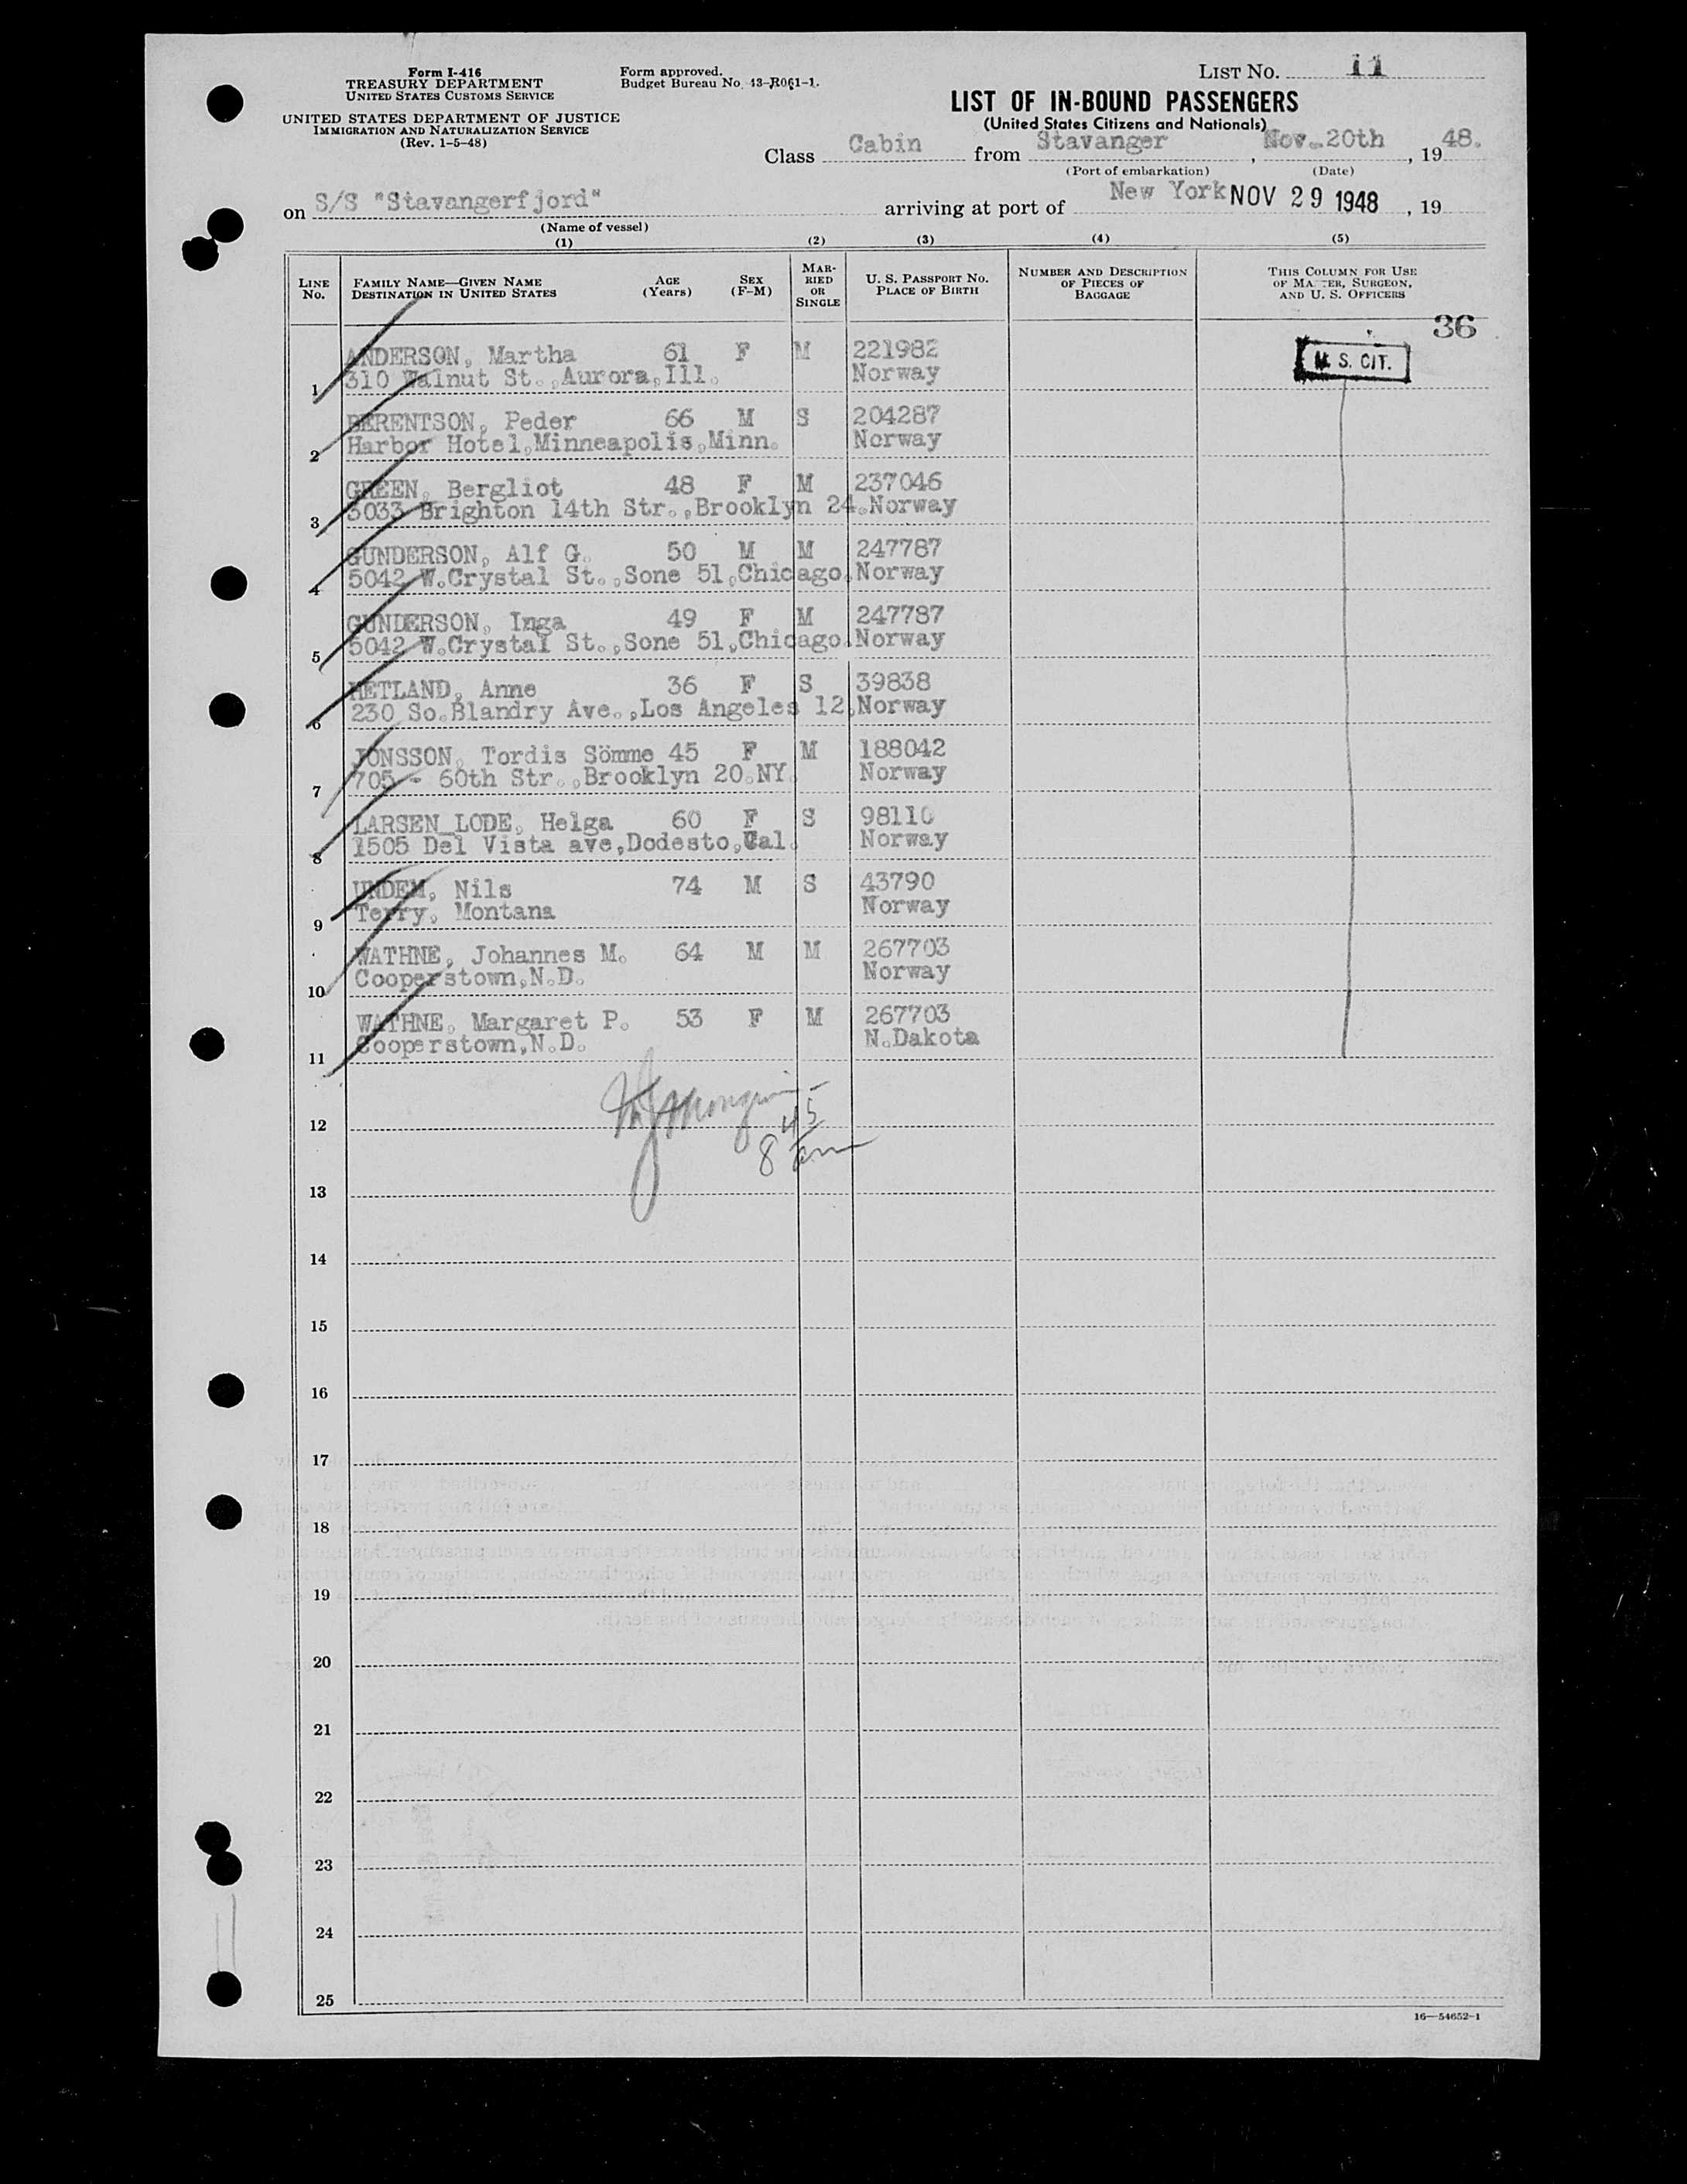 Form I-416
TREASURY DEPARTMENT
UNITED STATES CUSTOMS SERVICE
UNITED STATES DEPARTMENT OF JUSTICE
IMMIGRATION AND NATURALIZATION SERVICE
(Rev. 1-5-48)
Form approved.
Budget Bureau No. 43-R061-1.
LIST NO. 11
LIST OF IN-BOUND PASSENGERS
(United States Citizens and Nationals)
Class Cabin from Stavanger, Nov.20th, 1948.
(Port of embarkation) (Date)
on S/S "Stavangerfjord" arriving at port of New York NOV 29 1948, 19
(Name of vessel)
(1) (2) (3) (4) (5)
LINE No. FAMILY NAME—GIVEN NAME DESTINATION IN UNITED STATES AGE (Years) SEX (F-M) MARRIED OR SINGLE U. S. PASSPORT NO. PLACE OF BIRTH NUMBER AND DESCRIPTION OF PIECES OF BAGGAGE THIS COLUMN FOR USE OF MASTER, SURGEON, AND U. S. OFFICERS
36
ANDERSON, Martha 61 F M 221982 U. S. CIT.
1 310 Walnut St.,Aurora,Ill. Norway
BERENTSON, Peder 66 M S 204287
2 Harbor Hotel,Minneapolis,Minn. Norway
GREEN, Bergliot 48 F M 237046
3 3033 Brighton 14th Str.,Brooklyn 24.Norway
GUNDERSON, Alf G. 50 M M 247787
4 5042 W.Crystal St.,Sone 51,Chicago.Norway
GUNDERSON, Inga 49 F M 247787
5 5042 W.Crystal St.,Sone 51,Chicago.Norway
HETLAND, Anne 36 F S 39838
6 230 So.Blandry Ave.,Los Angeles 12,Norway
JONSSON, Tordis Sömme 45 F M 188042
7 705 - 60th Str.,Brooklyn 20.NY. Norway
LARSEN LODE, Helga 60 F S 98110
8 1505 Del Vista ave,Dodesto,Cal. Norway
UNDEM, Nils 74 M S 43790
9 Terry, Montana Norway
WATHNE, Johannes M. 64 M M 267703
10 Cooperstown,N.D. Norway
WATHNE, Margaret P. 53 F M 267703
11 Cooperstown,N.D. N.Dakota
12
8 45 am
13
14
15
16
17
18
19
20
21
22
23
24
25
16—54652-1